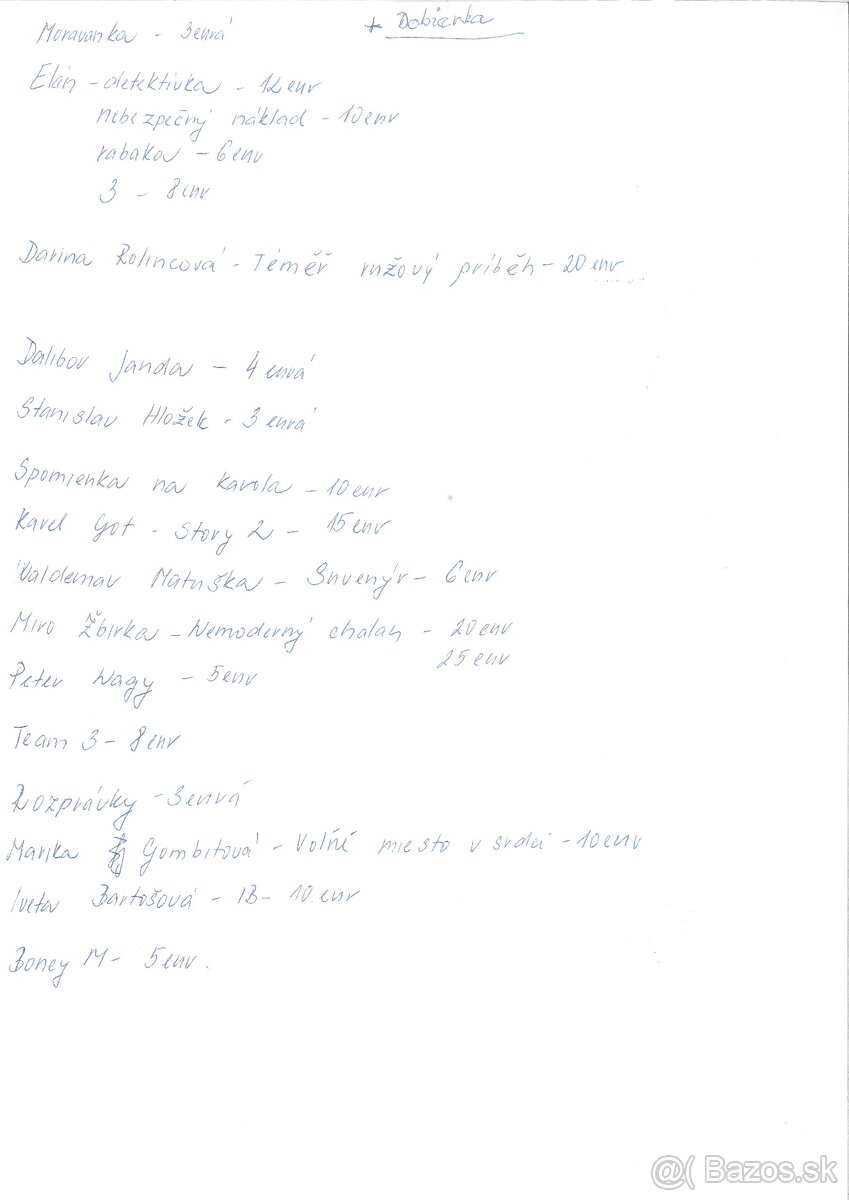 + Dobierka
Moravanka - 3 eurá
Elán - detektívka - 12 eur
nebezpečný náklad - 10 eur
rabaka - 6 eur
3 - 8 eur
Darina Rolincová - Téměřružový príběh - 20 eur
Dalibor Janda - 4 eurá
Stanislav Hložek - 3 eurá
Spomienka na Karola - 10 eur
Karel Got - Story 2 - 15 eur
Valdemar Matuška - Suvenýr - 6 eur
Miro Žbirka - Nemoderný chalan - 20 eur
25 eur
Peter Nagy - 5 eur
Team 3 - 8 eur
Rozprávky - 3 eurá
Marika Gombitová - Volňé miesto v srdci - 10 eur
Iveta Bartošová - IB - 10 eur
Boney M - 5 eur.
@( Bazos.sk